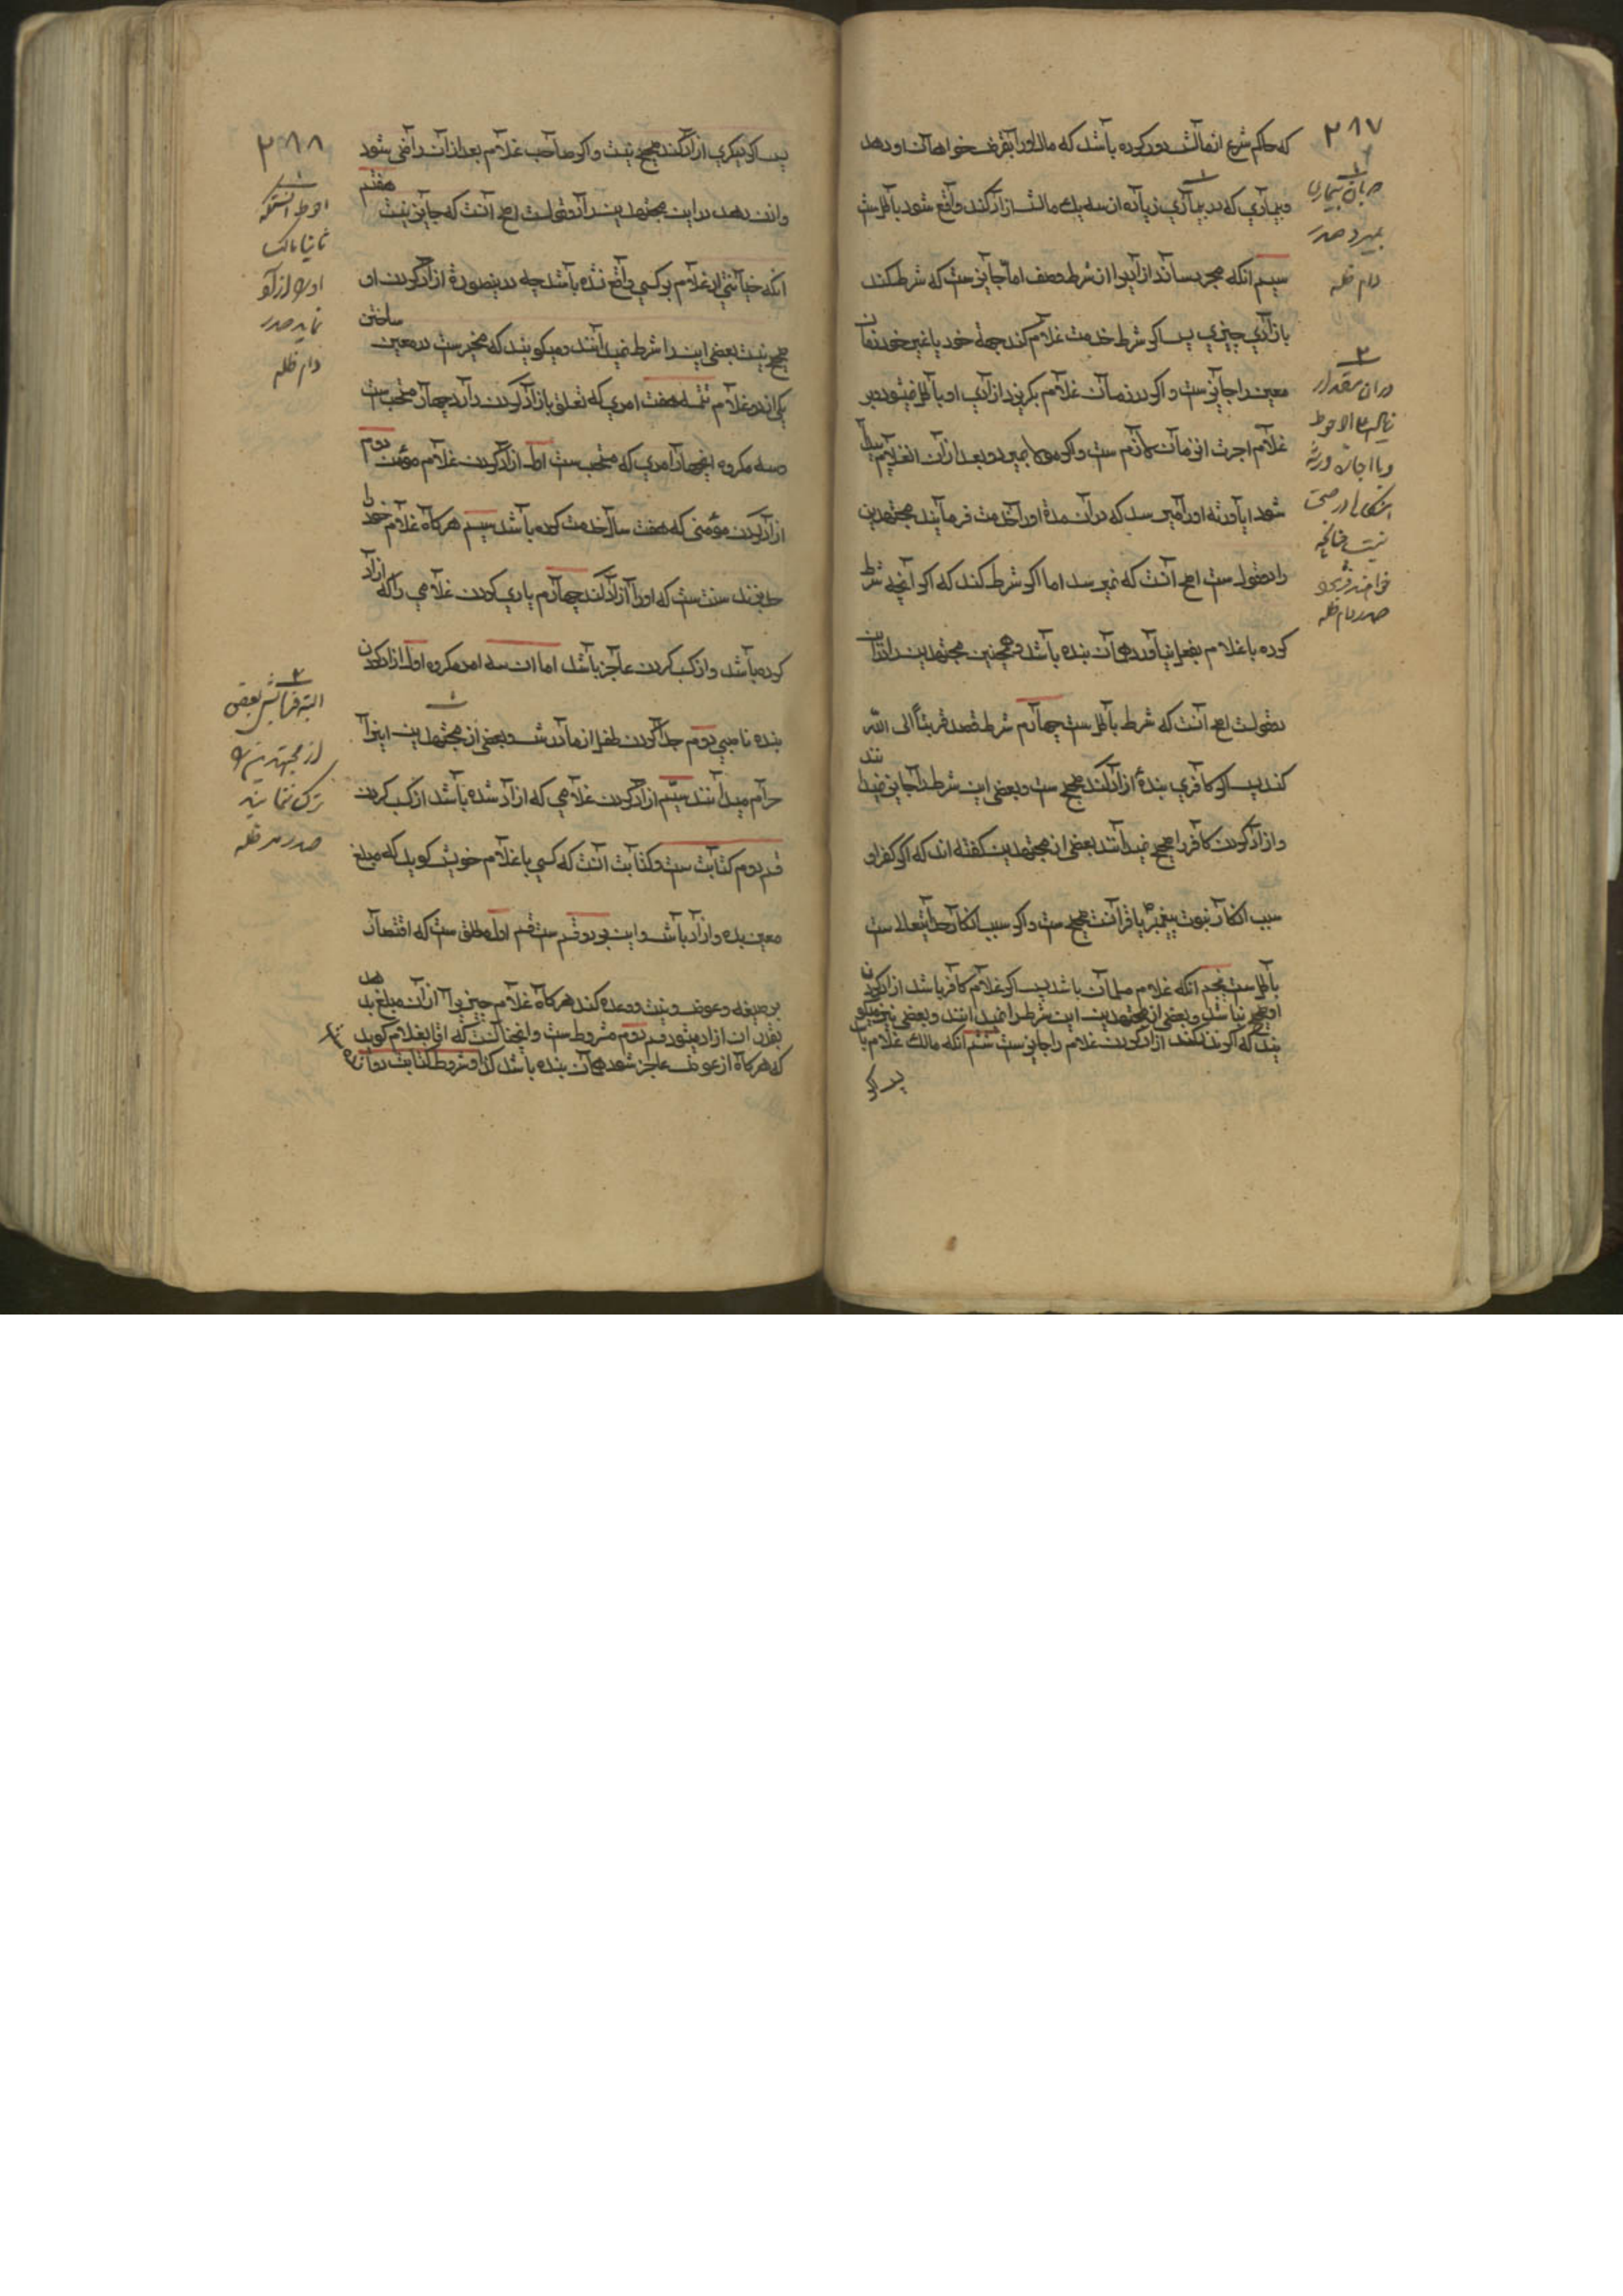 ۲۸۷
که حاکم شرع از مالش دور کرده باشد که مال او را بقرض خواهان او دهد
و بیماری که در بیماری زیاده از سه یک مالش ازاد کند واقع شود باطل ست
سیم انکه مجرد ساند ازادیرا از شرط و صف اما جایز ست که شرط کند
بازادی چیزی پس اگر شرط خدمت غلام کند جهة خود یا غیر خود زمان
معین را جایز ست و اگر در زمان غلام بگریزد ازادی او باطل نمیشود و بر
غلام اجرت ان زمان لازم ست و اگر مولا بمیرد و بعد از ان غلام پیدا
شود ایا ورثه او را میرسد که در ان مدة او را خدمت فرمایند مجتهدین
را دو قول ست اصح انست که نمیرسد اما اگر شرط کند که اگر انچه شرط
کرده با غلام بفعل نیاورد همان بنده باشد و همچنین مجتهدین را در ان
دو قولست اصح انست که شرط باطل ست چهارم شرط قصد قربةً الی الله
کند پس اگر کافری بندهٔ ازاد کند صحیح ست و بعضی این شرط را جایز نمیدانند
و ازاد کردن کافر را صحیح نمیدانند بعضی از مجتهدین گفته اند که اگر کفر او
سبب انکار نبوت پیغمبر یا قرآنست صحیح ست و اگر سبب انکار خدایتعالا ست
باطل ست پنجم انکه غلام مسلمان باشد پس اگر غلام کافر باشد ازاد کردن
او صحیح نباشد و بعضی از مجتهدین این شرط را نمیدانند و بعضی نیز میگو
یند که اگر نذر کند ازاد کردن غلام را جایز ست ششم انکه مالک غلام باشد
پس اگر
در ان مقدار
صدر دام ظله
۲۸۸
پس اگر دیگری ازاد کند صحیح نیست و اگر صاحب غلام بعد از ان راضی شود
و اذن دهد در این مجتهدین را دو قولست اصح انست که جایز نیست هفتم
انکه خیانتی از غلام بر کسی واقع نشده باشد چه در ینصورة ازاد کردن او
صحیح نیست بعضی این را شرط نمیدانند و میگویند که مخیر ست در معین ساختن
یکی از دو غلام تتمه هفت امری که تعلق بازاد کردن دارد چهار مستحب ست
و سه مکروه ان چهار امری که مستحب ست اول ازاد کردن غلام مؤمن دوم
ازاد کردن مؤمنی که هفت سال خدمت کرده باشد سیم هرگاه غلام خود را
حد بزند سنت ست که او را ازاد کند چهارم یاری کردن غلامی را که ازاد
کرده باشد و از کسب کردن عاجز باشد اما ان سه امر مکروه اول ازاد کردن
بنده ناصبی دوم جدا کردن طفل از مادرش و بعضی از مجتهدین اینرا
حرام میدانند سیّم ازاد کردن غلامی که ازاد شده باشد از کسب کردن
قسم دوم کتابت ست و کتابت انست که کسی با غلام خویش گوید که مبلغ
معین بده و ازاد باش و این بر دو قسم ست قسم اول مطلق ست که اقتصار
بر صیغه و عوض و نیت و وعده کند هرگاه غلام چیزیرا از ان مبلغ بدهد
بقدر ان ازاد میشود قسم دوم مشروط ست و انچنانست که اقا بغلام گوید
که هرگاه از عوض عاجز شود همان بنده باشد
دام ظله
البته فرمایش بعضی
از مجتهدین را
ترک ننمایند